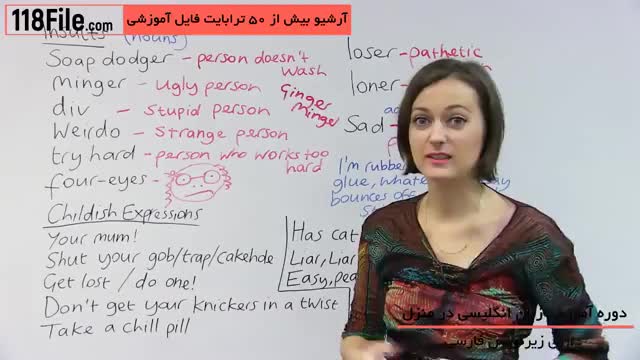 118File.com
آرشیو بیش از ۵۰ ترابایت فایل آموزشی
Insults (nouns)
Soap dodger - person doesn't wash
minger - ugly person
Ginger minger
div - stupid person
Weirdo - strange person
try hard - person who works too hard
four-eyes -
loser - pathetic
loner -
Sad -
I'm rubber
glue, what
bounces off
Childish Expressions
Your mum!
Shut your gob/trap/cakehole
Get lost / do one!
Don't get your knickers in a twist
Take a chill pill
Has cat
Liar, Liar
Easy, pea
دوره آموزش زبان انگلیسی در منزل
زیرنویس فارسی